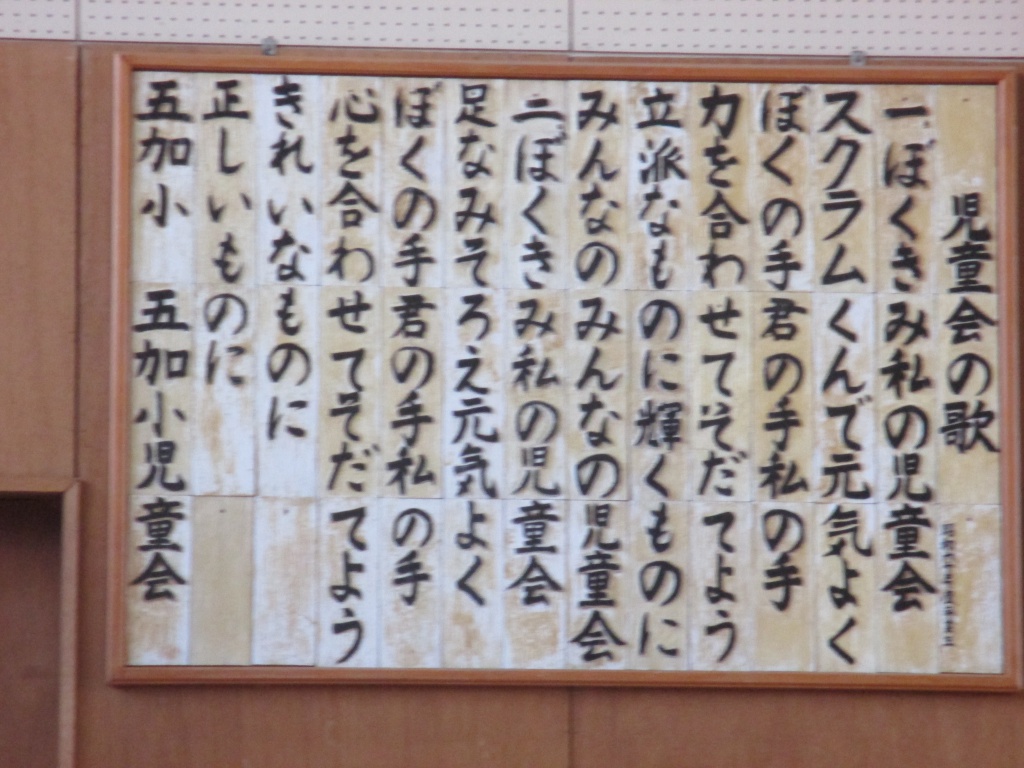 児童会の歌
一、ぼくきみ私の児童会
スクラムくんで元気よく
ぼくの手君の手私の手
力を合わせてそだてよう
立派なものに輝くものに
みんなのみんなの児童会
二、ぼくきみ私の児童会
足なみそろえ元気よく
ぼくの手君の手私の手
心を合わせてそだてよう
きれいなものに
正しいものに
五加小 五加小児童会